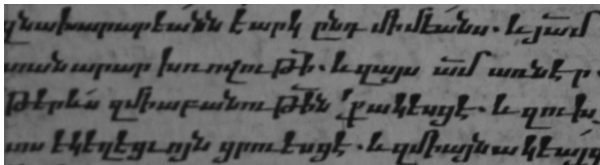 զնախարարեանն է արկ ընդ միմեանս. և յամ
առանարար խռովութի. և զայս ամ առնէր.
թերևս զմիաբանութին քակեսցէ. և զուխ
տս եկեղեցւոյն ցրուեսցէ. և զմիայնակեայս